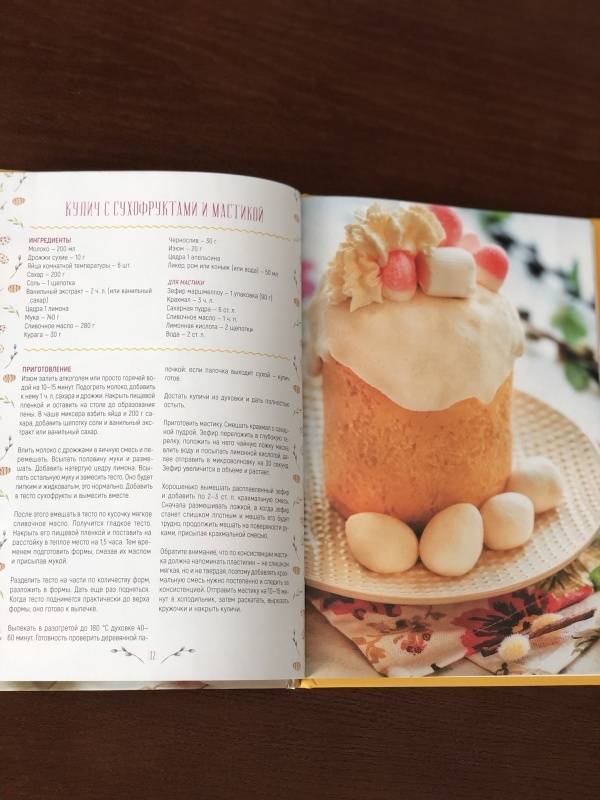 КУЛИЧ С СУХОФРУКТАМИ И МАСТИКОЙ
ИНГРЕДИЕНТЫ
Молоко – 200 мл
Дрожжи сухие – 10 г
Яйца комнатной температуры – 6 шт.
Сахар – 200 г
Соль – 1 щепотка
Ванильный экстракт – 2 ч. л. (или ванильный
сахар)
Цедра 1 лимона
Мука – 740 г
Сливочное масло – 280 г
Курага – 30 г
Чернослив – 30 г
Изюм – 20 г
Цедра 1 апельсина
Ликер, ром или коньяк (или вода) – 50 мл
ДЛЯ МАСТИКИ
Зефир маршмеллоу – 1 упаковка (90 г)
Крахмал – 3 ч. л.
Сахарная пудра – 6 ст. л.
Сливочное масло – 1 ч. л.
Лимонная кислота – 2 щепотки
Вода – 2 ст. л.
ПРИГОТОВЛЕНИЕ
Изюм залить алкоголем или просто горячей во-
дой на 10–15 минут. Подогреть молоко, добавить
к нему 1 ч. л. сахара и дрожжи. Накрыть пищевой
пленкой и оставить на столе до образования
пены. В чаше миксера взбить яйца и 200 г са-
хара, добавить щепотку соли и ванильный экс-
тракт или ванильный сахар.
Влить молоко с дрожжами в яичную смесь и пе-
ремешать. Всыпать половину муки и разме-
шать. Добавить натертую цедру лимона. Всы-
пать остальную муку и замесить тесто. Оно будет
липким и жидковатым, это нормально. Добавить
в тесто сухофрукты и вымесить вместе.
После этого вмешать в тесто по кусочку мягкое
сливочное масло. Получится гладкое тесто.
Накрыть его пищевой пленкой и поставить на
расстойку в теплое место на 1,5 часа. Тем вре-
менем подготовить формы, смазав их маслом
и присыпав мукой.
Разделить тесто на части по количеству форм,
разложить в формы. Дать еще раз подняться.
Когда тесто поднимется практически до верха
формы, оно готово к выпечке.
Выпекать в разогретой до 180 °С духовке 40–
60 минут. Готовность проверить деревянной па-
лочкой: если палочка выходит сухой – кулич
готов.
Достать куличи из духовки и дать полностью
остыть.
Приготовить мастику. Смешать крахмал с сахар-
ной пудрой. Зефир переложить в глубокую та-
релку, положить на него чайную ложку масла,
влить воду и посыпать лимонной кислотой, да-
лее отправить в микроволновку на 30 секунд.
Зефир увеличится в объеме и растает.
Хорошенько вымешать расплавленный зефир
и добавить по 2–3 ст. л. крахмальную смесь.
Сначала размешивать ложкой, а когда зефир
станет слишком плотным и мешать его будет
трудно, продолжить мешать на поверхности ру-
ками, присыпая крахмальной смесью.
Обратите внимание, что по консистенции масти-
ка должна напоминать пластилин – не слишком
мягкая, но и не твердая, поэтому добавлять крах-
мальную смесь нужно постепенно и следить за
консистенцией. Отправить мастику на 10–15 минут
в холодильник, затем раскатать, вырезать
кружочки и накрыть куличи.
12